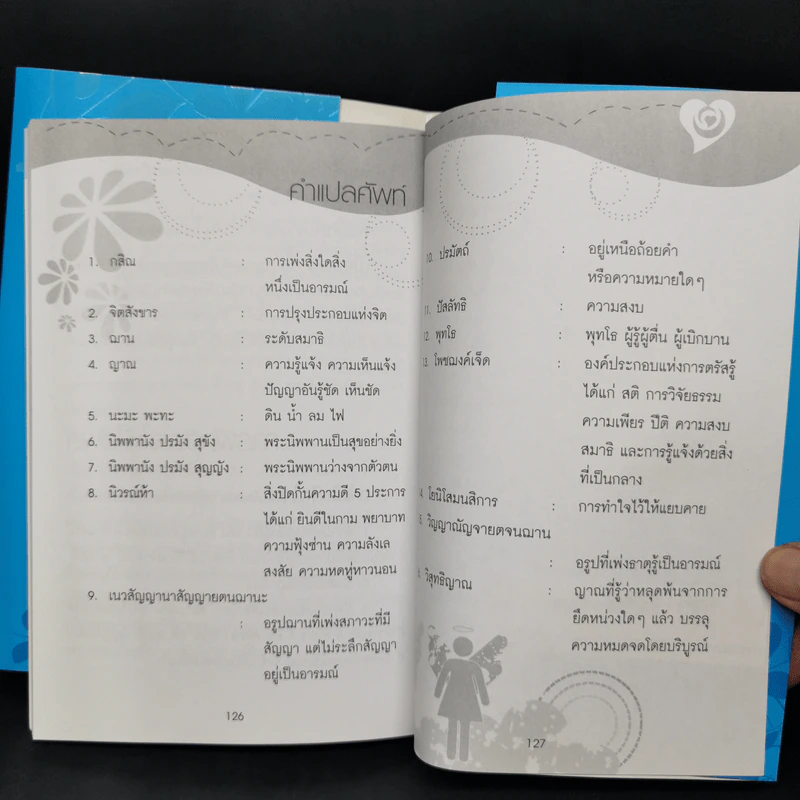 คำแปลศัพท์
1. กสิณ : การเพ่งสิ่งใดสิ่ง
หนึ่งเป็นอารมณ์
2. จิตสังขาร : การปรุงประกอบแห่งจิต
3. ฌาน : ระดับสมาธิ
4. ญาณ : ความรู้แจ้ง ความเห็นแจ้ง
ปัญญาอันรู้ชัด เห็นชัด
5. นะมะ พะทะ : ดิน น้ำ ลม ไฟ
6. นิพพานัง ปรมัง สุขัง : พระนิพพานเป็นสุขอย่างยิ่ง
7. นิพพานัง ปรมัง สุญญัง : พระนิพพานว่างจากตัวตน
8. นิวรณ์ห้า : สิ่งปิดกั้นความดี 5 ประการ
ได้แก่ ยินดีในกาม พยาบาท
ความฟุ้งซ่าน ความลังเล
สงสัย ความหดหู่หาวนอน
9. เนวสัญญานาสัญญายตนฌานะ
: อรูปฌานที่เพ่งสภาวะที่มี
สัญญา แต่ไม่ระลึกสัญญา
อยู่เป็นอารมณ์
126
10. ปรมัตถ์ : อยู่เหนือถ้อยคำ
หรือความหมายใดๆ
11. ปัสสัทธิ : ความสงบ
12. พุทโธ : พุทโธ ผู้รู้ผู้ตื่น ผู้เบิกบาน
13. โพชฌงค์เจ็ด : องค์ประกอบแห่งการตรัสรู้
ได้แก่ สติ การวิจัยธรรม
ความเพียร ปีติ ความสงบ
สมาธิ และการรู้แจ้งด้วยสิ่ง
ที่เป็นกลาง
4. โยนิโสมนสิการ : การทำใจไว้ให้แยบคาย
5. วิญญาณัญจายตจนฌาน
: อรูปที่เพ่งธาตุรู้เป็นอารมณ์
วิสุทธิญาณ : ญาณที่รู้ว่าหลุดพ้นจากการ
ยึดหน่วงใดๆ แล้ว บรรลุ
ความหมดจดโดยบริบูรณ์
127